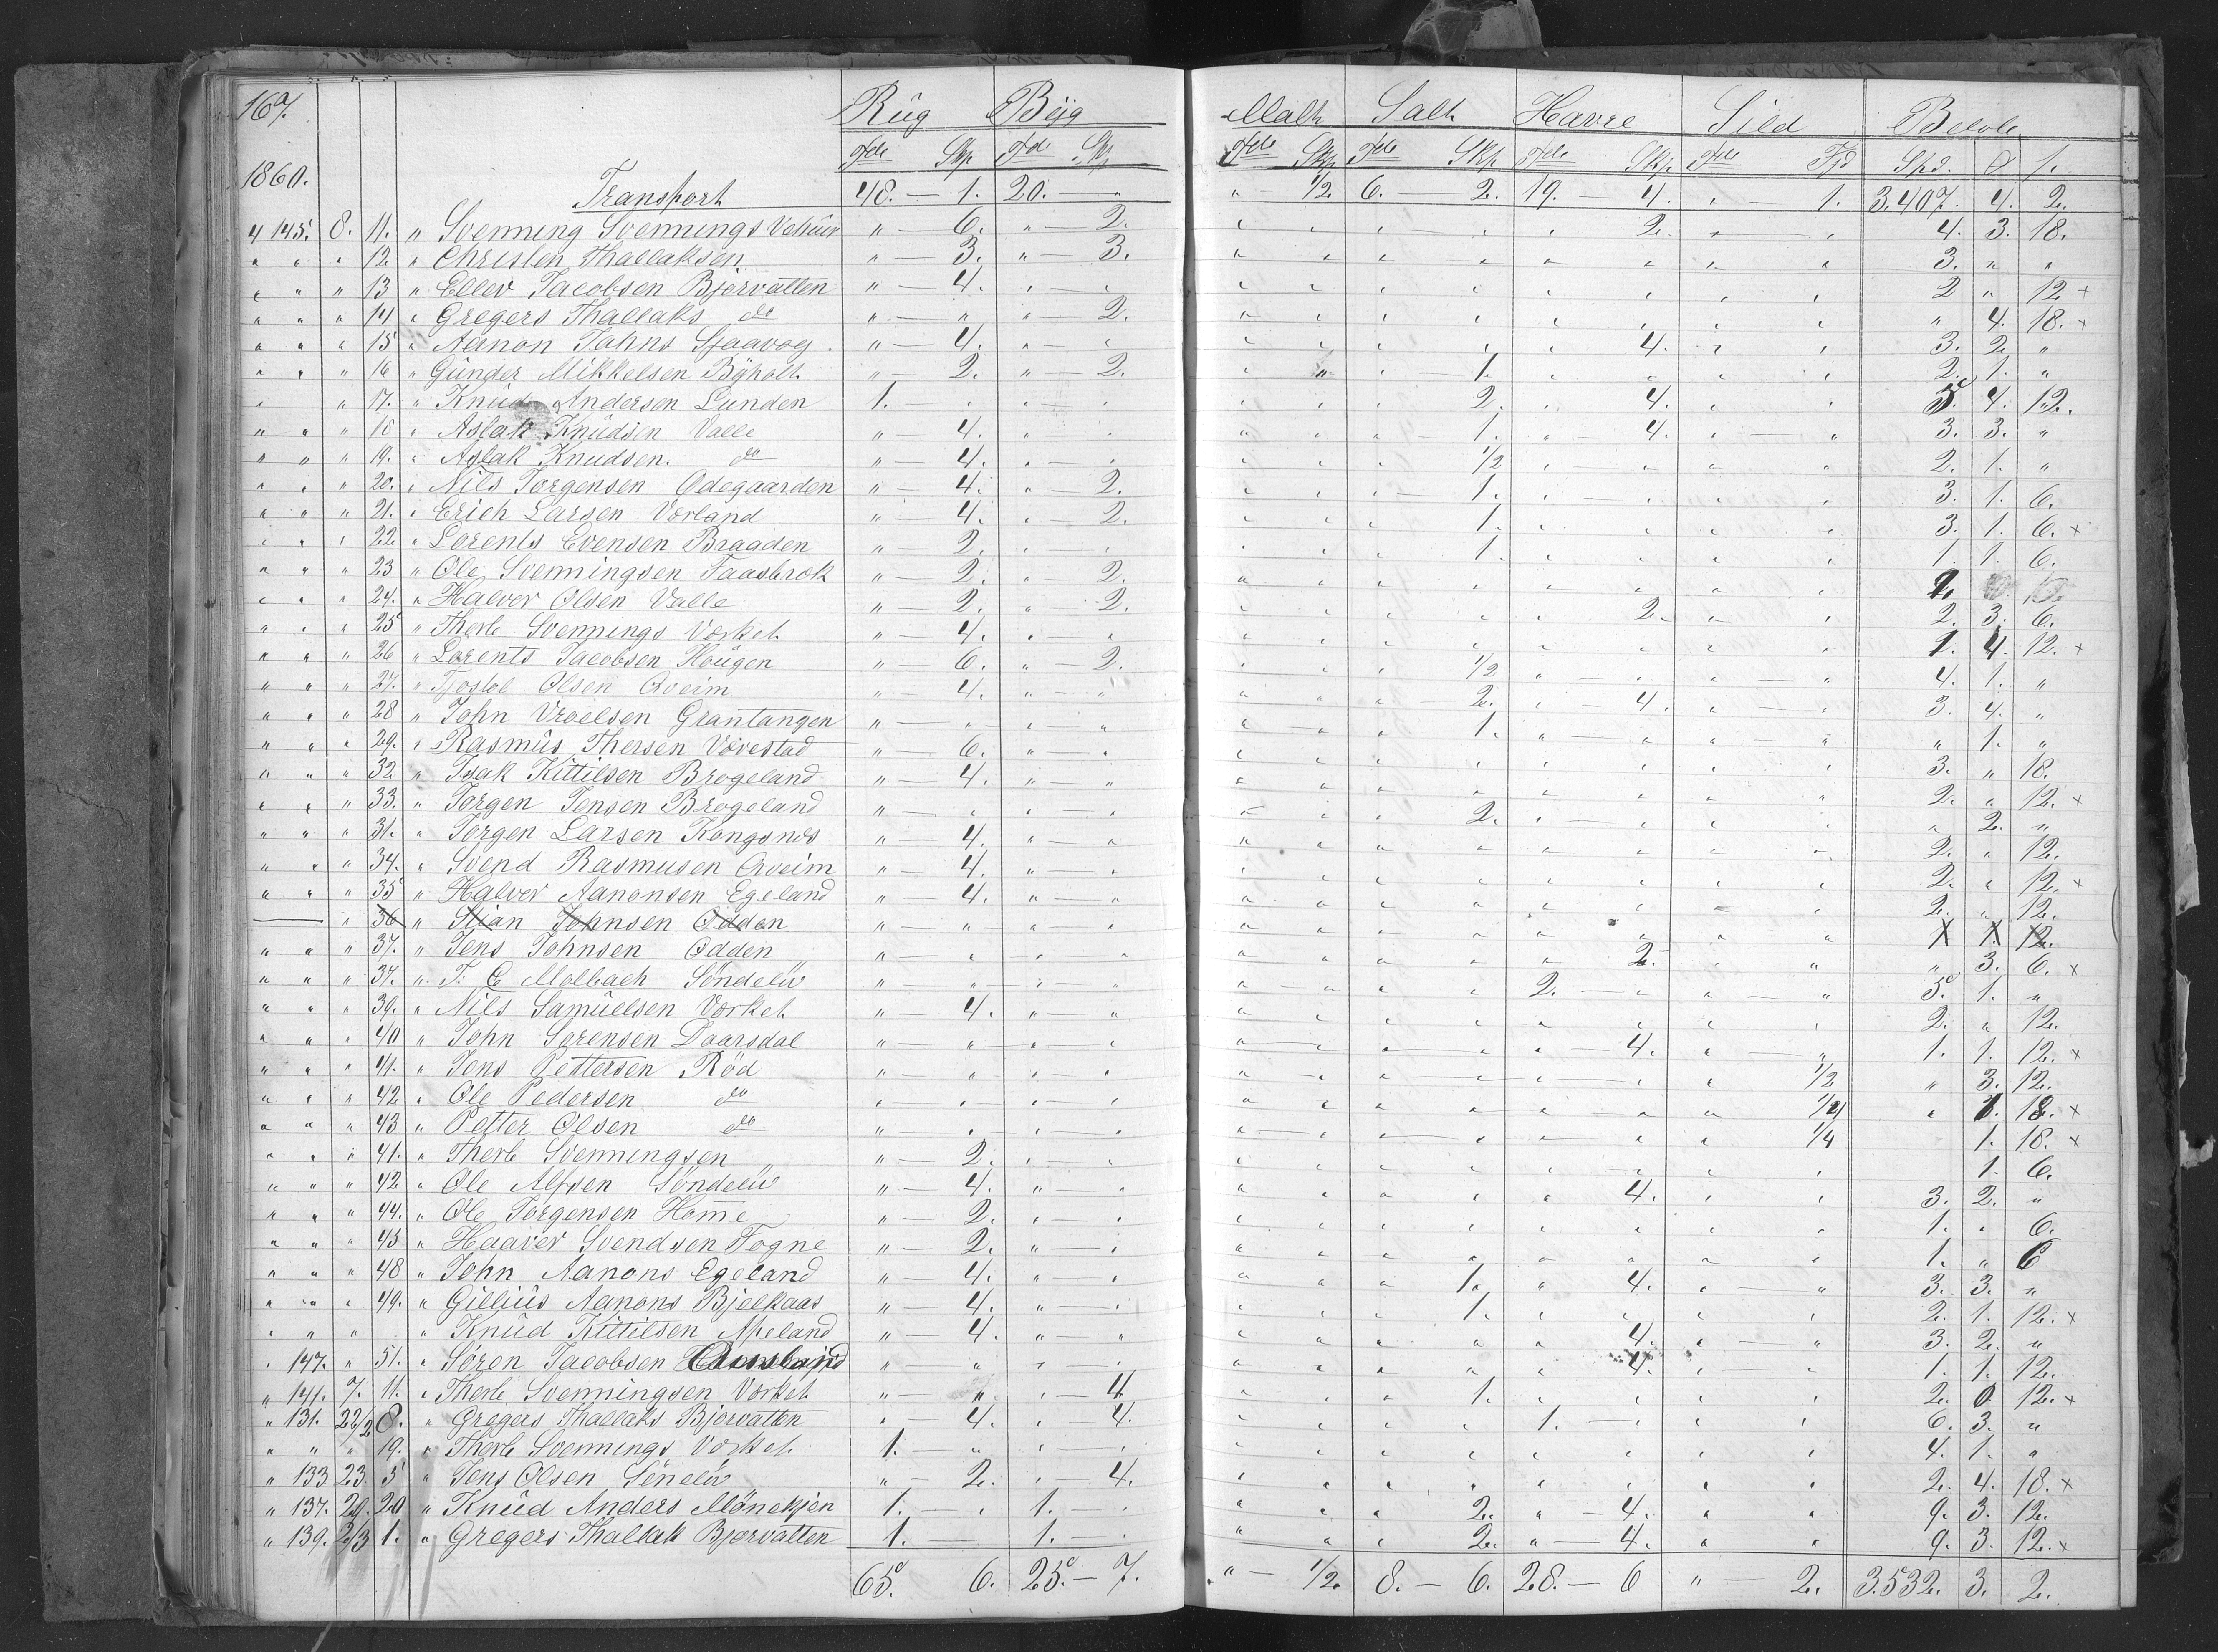 167.
Rüg Bÿg Malt Salt Havre Sild Beløb
Tde Skp Tde Skp Tde Skp Tde Skp Tde Skp Tde Fjd Spd. o s.
1860.
Transport 48. — 1. 20. — " " — 1/2. 6. — 2. 19. — 4. " — 1. 3.407. 4. 2.
4 145. 8. 11. " Svenning Svennings " — 6. " — 2. " " " " " 2. " — " 4. 3. 18.
" " " 12. " Christen Thallaksen " — 3. " — 3. " " " " " " " " 3. " "
" " " 13 " Ellev Jacobsen Bjorvatten " — 4. " " " " " " " " " " 2 " 12 +
" " " 14 " Gregers Thallaks do " — " " — 2. " " " " " " " " " 4. 18. +
" " " 15 " Aanon Johns " — 4. " — " " " " " " 4. " " 3. 2 "
" " " 16 " Günder Mikkelsen Bÿholt " — 2. " — 2. " " " — 1. " " " " 2. 1. "
" " 17. " Knüd Andersen Lunden 1. " " — " " " " 2. " 4. " " 5. 4. 12.
" " " 18 " Aslak Knüdsen Valle " 4. " " " " " — 1. " — 4. " — " 3. 3. "
" " " 19. " Aslak Knudsen. do " — 4. " — " " " " 1/2 " — " " — " 2. 1. "
" " " 20. " Nils Jorgensen Odegaarden " — 4. " — 2. " " " — 1. " — " " " 3. 1. 6.
" " " 21. " Erich Larsen Vorland " — 4. " — 2. " " " 1. " " " " 3. 1. 6. +
" " " 22 " Lorents Evensen Braaden " — 2. " " " " " 1. " " " " 1 1. 6.
" " " 23 " Ole Svenningsen Faasbrok " — 2. " 2. " " " " " " " " 2.
" " " 24. " Halver Olsen Valle " — 2. " — 2. " " " " " 2. " — " 2. 3. 6.
" " " 25 " Therle Svennings Vorket " — 4. " — " " " " " " " " " 1. 4. 12. +
" " " 26 " Lorents Jacobsen Hougen " — 6. " — 2. " " " 1/2 " " " — " 4. 1. "
" " " 27. " Tjostel Olsen Qveim " — 4. " — " " " " — 2. " — 4. " — " 3. 4. "
" " " 28 " John Vroelsen Grantangen " — " " " " " " 1. " — " " — " " 1. "
" " " 29. " Rasmüs Thersen Vovestad " — 6. " — " " " " " " " " " 3. " 18.
" " " 32 " Isak Kittilsen Brogeland " — 4. " — " " " " " " " " " 2. " 12. +
" " " 33. " Jorgen Jensen Brogeland " — " " " " " " 2. " — " " " " 2. "
" " " 31. " Jorgen Larsen Kongsnes " — 4. " — " " " " " " " " " 2. " 12.
" " " 34. " Svend Rasmusen Qveim " — 4. " — " " " " " " " " " 2. " 12. +
" " " 35 " Halver Aanonsen Egeland " — 4. " — " " " " " " " " " 2. " 12.
— " 36 " Stian Johnsen Odden " — " " " " " " " " " " " 1 1. 12.
" " " 37. " Jens Johnsen Odden " — " " — " " " " " " 2. " " " 3. 6. +
" " " 37. " T. C Molbach Söndelü " — " " — " " — " " " 2. — " " — " 5. 1. "
" " " 39. " Nils Samüelsen Vorket " — 4. " " " " " " " " " " 2. " 12.
" " " 40 " John Sorensen Daarsdal " — " " — " " " " " " — 4. " — " 1. 1. 12. +
" " " 41. " Jens Pettersen Röd " " " — " " " " " " " " 1/2 " 3. 12.
" " " 42 " Ole Pedersen do " — " " — " " " " " " " " 1/4 " 1. 18. +
" " " 43 " Petter Olsen do " " " — " " " " " " " " 1/4 1. 18. +
" " " 41. " Therle Svenningsen " — 2. " — " " " " " " " " " 1. 6.
" " " 42 " Ole Alfsen Söndelü " — 4. " — " " " " " " 4. " " 3. 2. "
" " " 44. " Ole Jörgensen Home " — 2. " — " " " " " " " " " 1. " 6.
" " " 45 " Haaver Svendsen Fogne " — 2. " — " " " " " " " " " 1. " 6
" " " 48 " John Aanons Egeland " — 4. " — " " " " 1. " 4. " — " 3. 3. "
" " " 49. " Gilliüs Aanons Bjelkaas " — 4. " — " " " " 1. " " " " 2. 1. 12. +
" " " " Knüd Kittilsen Apeland " — 4. " — " " " " " " 4. " — " 3. 2. "
" 147. " 51. " Sören Jacobsen " — " " — " " " " " " 4. " " 1. 1. 12.
" 141. 7. 11. " Therle Svenningsen Vorket " — " " — 4 " " " 1. " " " " 2. 0 12. +
" 131. 22/2 8. " Gregers Thallaks Bjorvatten " — 4. " — 4. " " " " 1. — " " " 6. 3. "
" " " 19. " Therle Svennings Vorket 1. — " " — " " " " " " " " " 4. 1. "
" 133 23. 5 " Jens Olsen Sönelü " — 2. " — 4. " " " " " " " " 2. 4. 18. +
" 137. 29. 20 " Knüd Anders Mönekjen 1. — " 1. — " " " " 2. " — 4. " " 9. 3. 12.
" 139. 2/3 1. " Gregers Thallak Bjorvatten 1. — 1. — " " " " 2. " — 4. " " 9. 3. 12. +
65. 6. 25. — 7. " — 1/2. 8. — 6. 28. — 6 " — 2. 3.532. 3. 2.